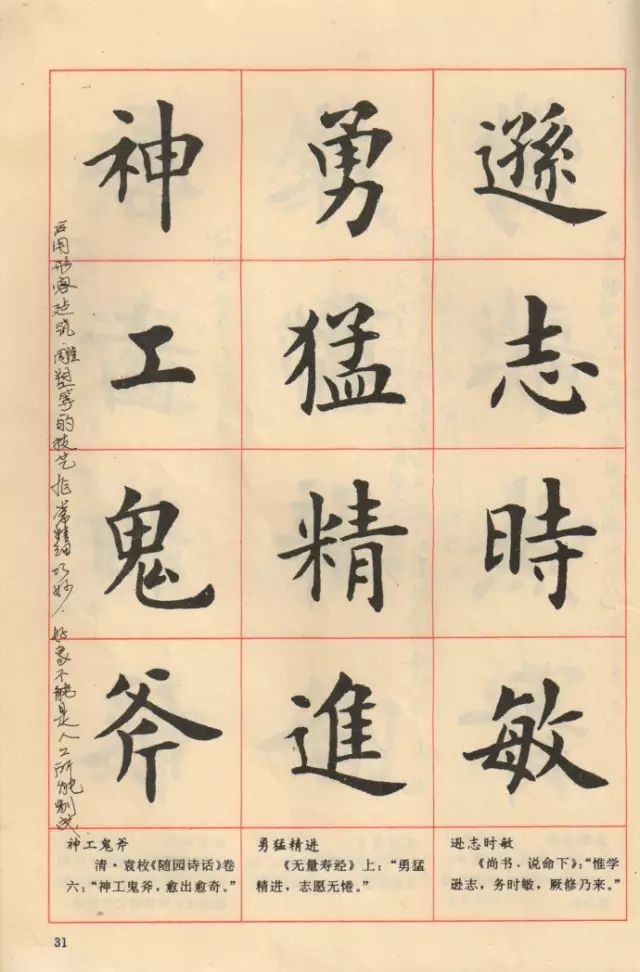 遜志時敏
勇猛精進
神工鬼斧
后用形容建筑雕塑等的技艺非常精细巧妙，好象不能是人工所能制成.
神工鬼斧
清·袁枚《随园诗话》卷
六：“神工鬼斧，愈出愈奇。”
勇猛精进
《无量寿经》上：“勇猛
精进，志愿无倦。”
逊志时敏
《尚书．说命下》：“惟学
逊志，务时敏，厥修乃来。”
31